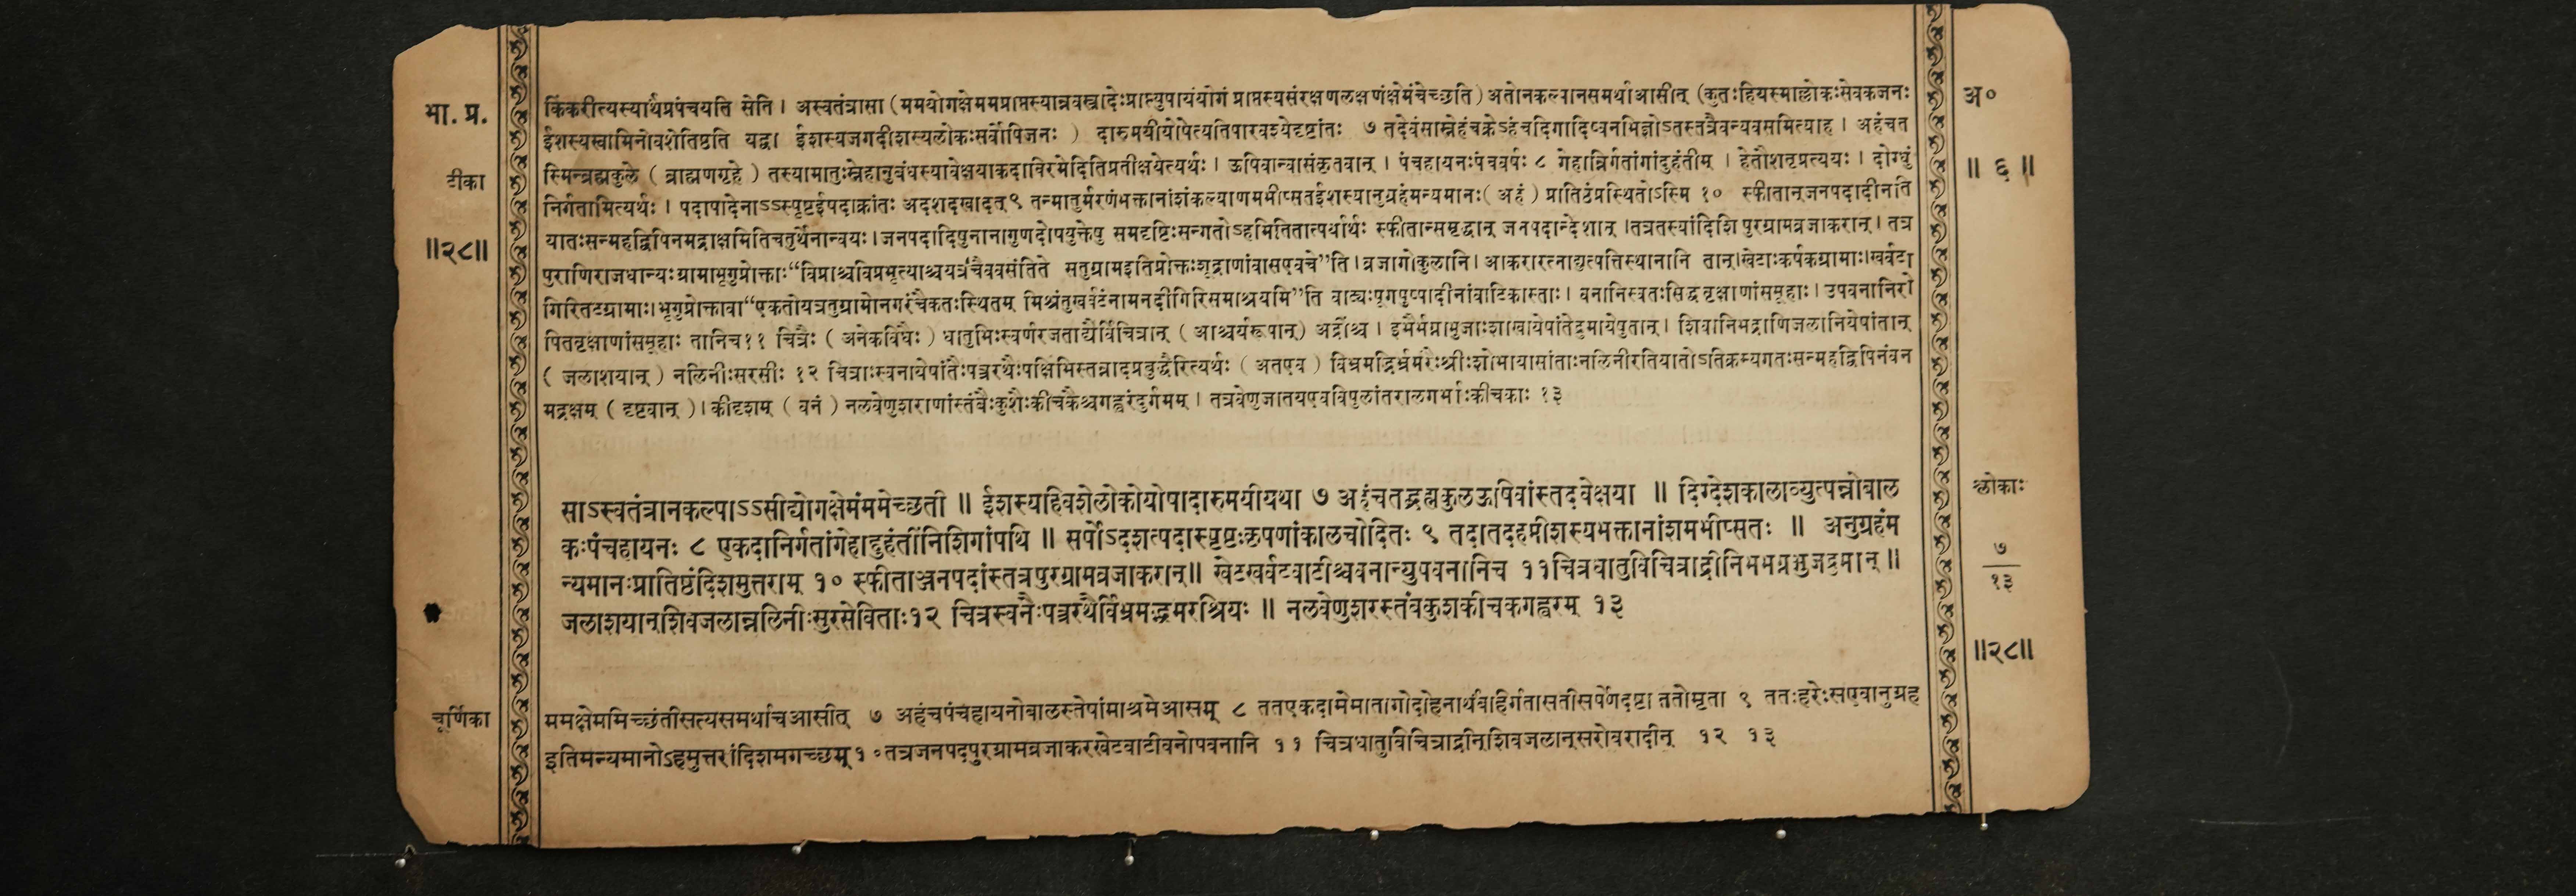 भा. प्र.
टीका
॥२८॥
किंकरीत्यस्यार्थप्रपंचयति सेति । अस्वतंत्रासा (ममयोगक्षेममप्राप्तस्यान्नवस्त्रादेःप्राप्त्युपायंयोगं प्राप्तस्यसंरक्षणलक्षणंक्षेमंचेच्छति) अतोनकल्पानसमर्थाआसीत् (कुतःहियस्माल्लोकःसेवकजनः
ईशस्यस्वामिनोवशेतिष्ठति यद्वा ईशस्यजगदीशस्यलोकःसर्वोपिजनः ) दारुमयीयोषेत्यतिपारवश्येदृष्टांतः ७ तदेवंसास्नेहंचक्रेऽहंचदिगादिष्वनभिज्ञोऽतस्तत्रैवन्यवसमित्याह । अहंचत
स्मिन्ब्रह्मकुले ( ब्राह्मणगृहे ) तस्यामातुःस्नेहानुबंधस्यावेक्षयाकदाविरमेदितिप्रतीक्षयेत्यर्थः । ऊषिवान्वासंकृतवान् । पंचहायनःपंचवर्षः ८ गेहान्निर्गतांगांदुहंतीम् । हेतौशतृप्रत्ययः । दोग्धुं
निर्गतामित्यर्थः । पदापादेनाऽऽस्पृष्टईषदाक्रांतः अदशदखादत्९ तन्मातुर्मरणंभक्तानांशंकल्याणमभीप्सतईशस्यानुग्रहंमन्यमानः( अहं ) प्रातिष्ठंप्रस्थितोऽस्मि १० स्फीतान्जनपदादीनति
यातःसन्महद्विपिनमद्राक्षमितिचतुर्थेनान्वयः ।जनपदादिषुनानागुणदोषयुक्तेषु समदृष्टिःसन्गतोऽहमितितात्पर्यार्थः स्फीतान्समृद्धान् जनपदान्देशान् ।तत्रतस्यांदिशि पुरग्रामव्रजाकरान्। तत्र
पुराणिराजधान्यःग्रामाभृगुप्रोक्ताः“विप्राश्चविप्रभृत्याश्चयत्रचैववसंतिते सतुग्रामइतिप्रोक्तःशूद्राणांवासएवचे”ति । व्रजागोकुलानि । आकरारत्नाद्युत्पत्तिस्थानानि तान्।खेटाःकर्षकग्रामाः।खर्वटा
गिरितटग्रामाः।भृगुप्रोक्तावा“एकतोयत्रतुग्रामोनगरंचैकतःस्थितम् मिश्रंतुखर्वटंनामनदीगिरिसमाश्रयमि”ति वाट्यःपूगपुष्पादीनांवाटिकास्ताः । वनानिस्वतःसिद्धवृक्षाणांसमूहाः । उपवनानिरो
पितवृक्षाणांसमूहाः तानिच११ चित्रैः ( अनेकविधैः ) धातुभिःस्वर्णरजताद्यैर्विचित्रान् ( आश्चर्यरूपान्) अद्रींश्च । इभैर्भग्नाभुजाःशाखायेषांतेद्रुमायेषुतान्। शिवानिभद्राणिजलानियेषांतान्
( जलाशयान् ) नलिनीःसरसीः १२ चित्राःस्वनायेषांतैःपत्ररथैःपक्षिभिस्तन्नादप्रबुद्धैरित्यर्थः ( अतएव ) विभ्रमद्भिर्भ्रमरैःश्रीःशोभायासांताःनलिनीरतियातोऽतिक्रम्यगतःसन्महद्विपिनंवन
मद्राक्षम् ( दृष्टवान् )। कीदृशम् ( वनं ) नलवेणुशराणांस्तंबैःकुशैःकीचकैश्चगह्वरंदुर्गमम् । तत्रवेणुजातयएवविपुलांतरालगर्भाःकीचकाः १३
साऽस्वतंत्रानकल्पाऽऽसीद्योगक्षेमंममेच्छती ॥ ईशस्यहिवशेलोकोयोषादारुमयीयथा ७ अहंचतद्ब्रह्मकुलऊषिवांस्तदवेक्षया ॥ दिग्देशकालाव्युत्पन्नोबाल
कःपंचहायनः ८ एकदानिर्गतांगेहाद्दुहंतींनिशिगांपथि ॥ सर्पोऽदशत्पदास्पृष्टःकृपणांकालचोदितः ९ तदातदहमीशस्यभक्तानांशमभीप्सतः ॥ अनुग्रहंम
न्यमानःप्रातिष्ठंदिशमुत्तराम् १० स्फीताञ्जनपदांस्तत्रपुरग्रामव्रजाकरान्॥ खेटखर्वटवाटीश्चवनान्युपवनानिच ११चित्रधातुविचित्राद्रीनिभभग्नभुजद्रुमान् ॥
जलाशयान्शिवजलान्नलिनीःसुरसेविताः१२ चित्रस्वनैःपत्ररथैर्विभ्रमद्भ्रमरश्रियः ॥ नलवेणुशरस्तंबकुशकीचकगह्वरम् १३
चूर्णिका
ममक्षेममिच्छंतीसत्यसमर्थाचआसीत् ७ अहंचपंचहायनोबालस्तेषांमाश्रमेआसम् ८ ततएकदामेमातागोदोहनार्थंबहिर्गतासतीसर्पेणदष्टा ततोमृता ९ ततःहरेःसएवानुग्रह
इतिमन्यमानोऽहमुत्तरांदिशमगच्छम्१०तत्रजनपदपुरग्रामव्रजाकरखेटवाटीवनोपवनानि ११ चित्रधातुविचित्राद्रीन्शिवजलान्सरोवरादीन् १२ १३
अ०
॥ ६ ॥
श्लोकाः
७
१३
॥२८॥